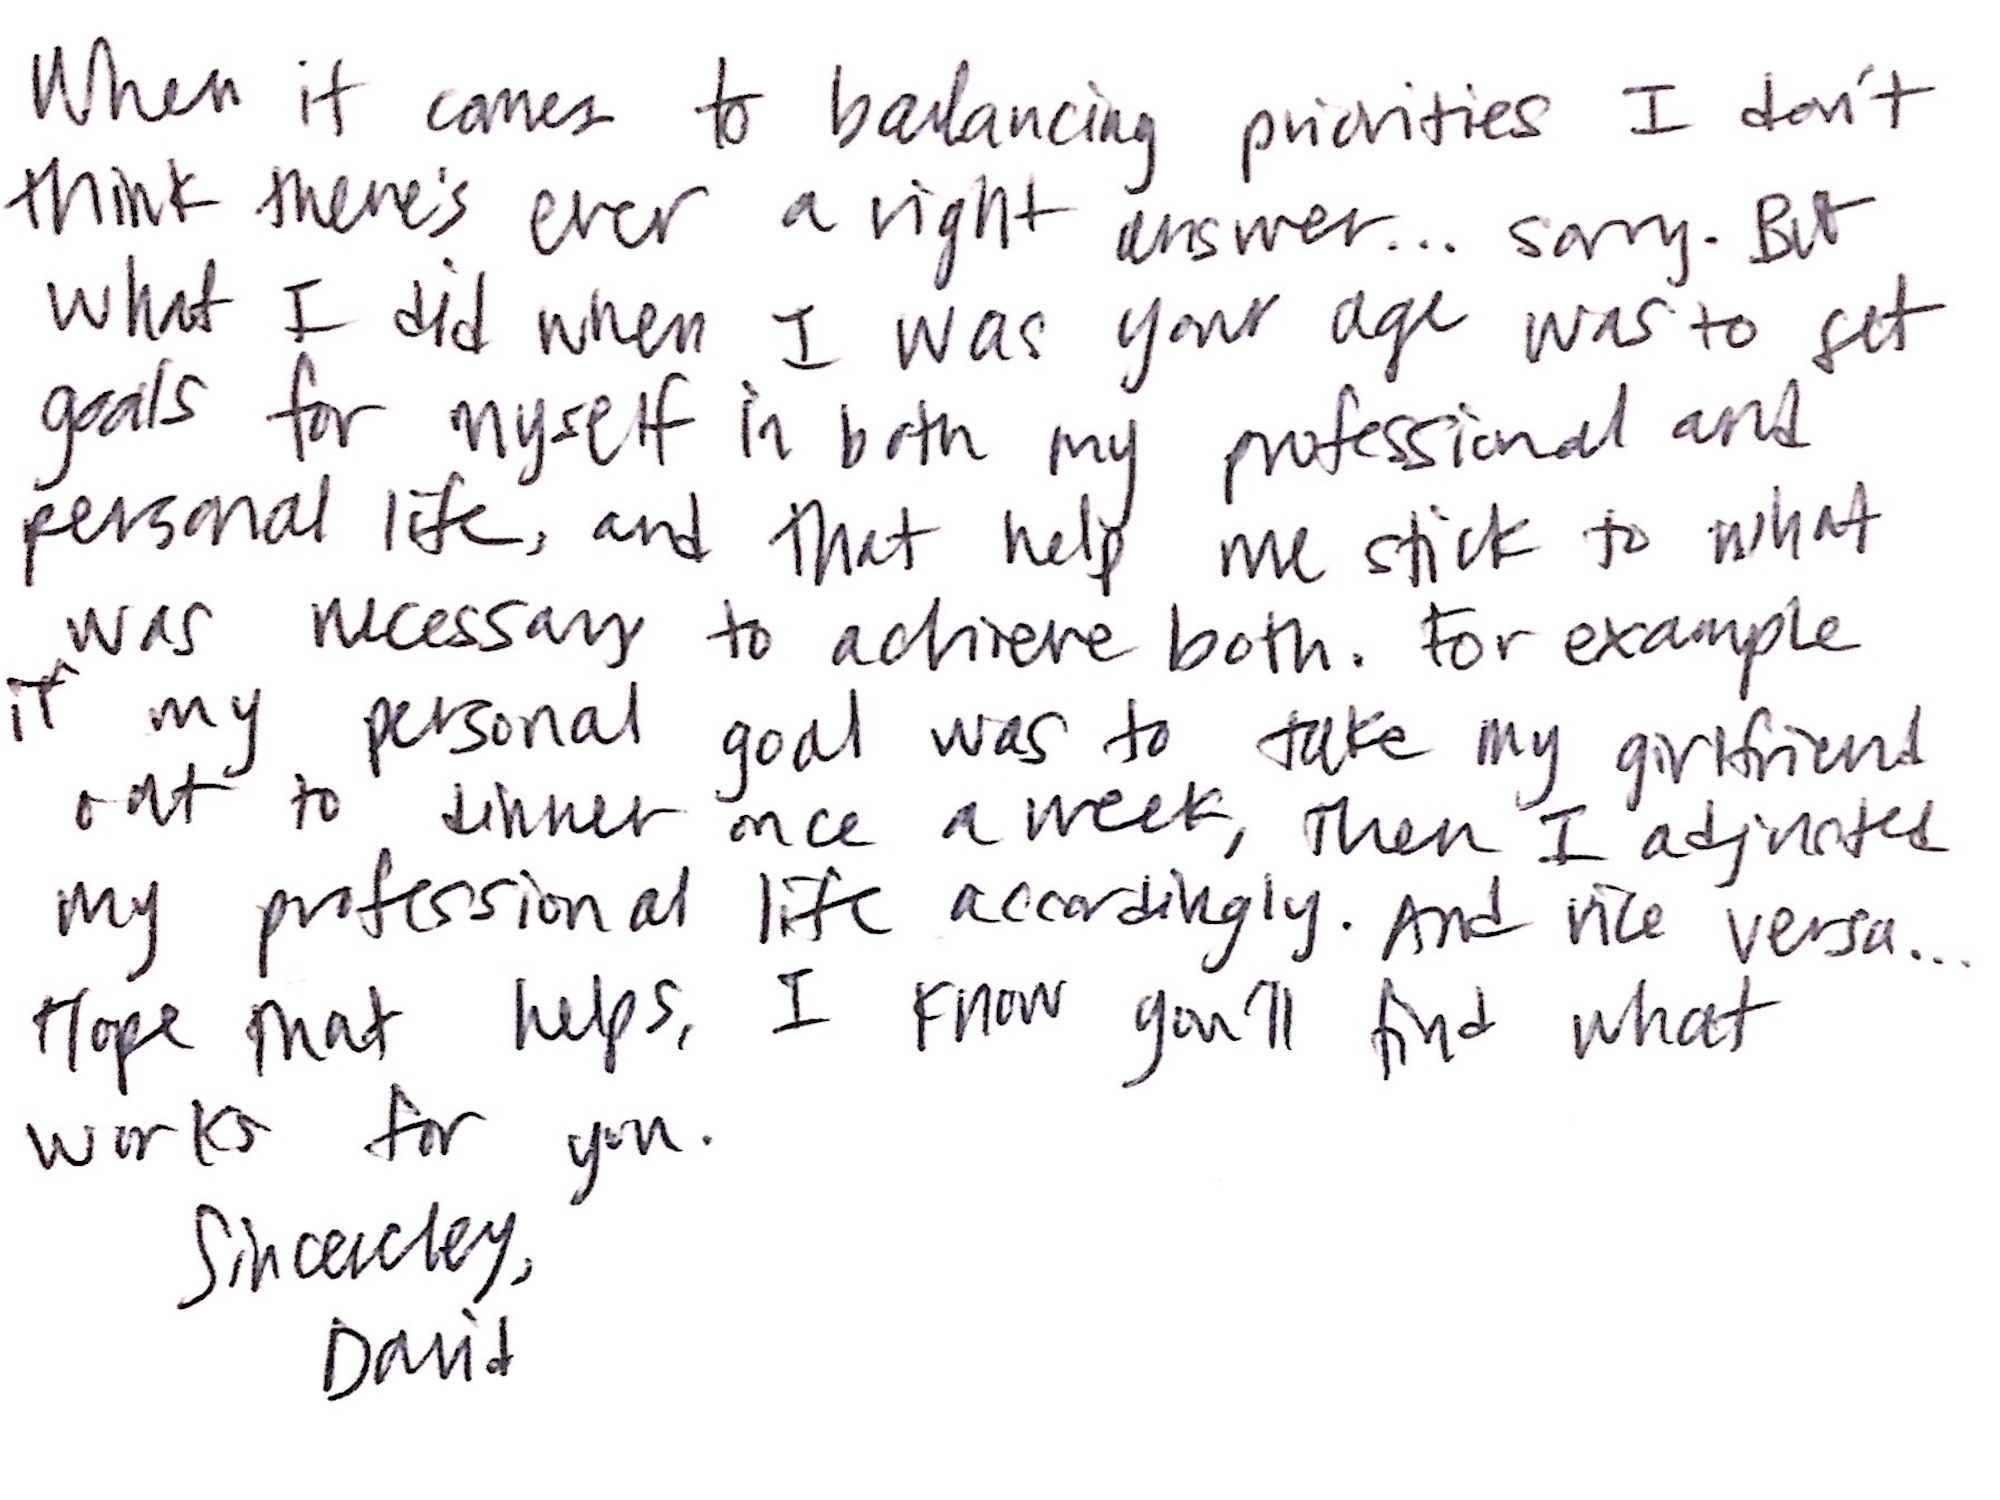 When it comes to balancing priorities I don't
think there's ever a right answer... sorry. But
what I did when I was your age was to set
goals for myself in both my professional and
personal life, and that help me stick to what
was necessary to achieve both. For example
if my personal goal was to take my girlfriend
out to dinner once a week, then I adjusted
my professional life accordingly. And vice versa...
Hope that helps, I know you'll find what
works for you.
Sincereley,
David